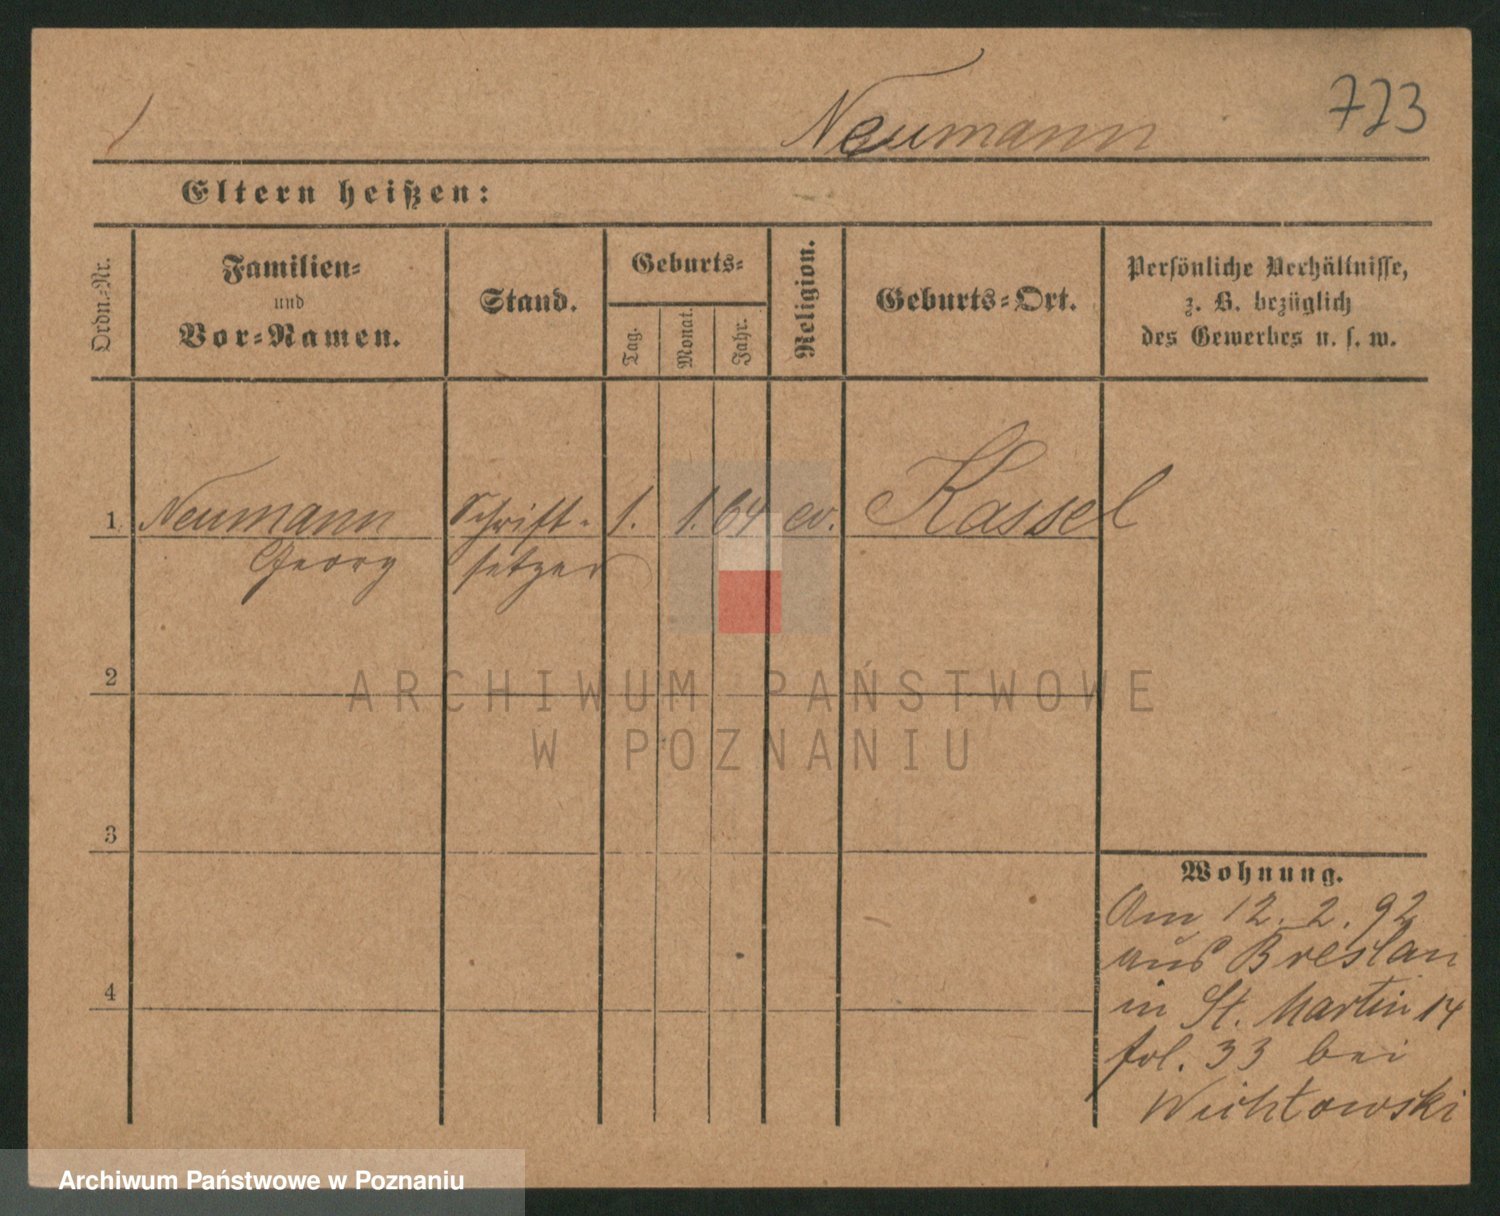 Neumann
723
Eltern heißen:
Ordn.-Nr.
Familien-
und
Vor-Namen.
Stand.
Geburts-
Tag.
Monat.
Jahr.
Religion.
Geburts-Ort.
Persönliche Verhältnisse,
z. B. bezüglich
des Gewerbes u. s. w.
1 Neumann Schrift- 1. 1. 64 ev. Kassel
Georg setzer
2
ARCHIWUM PAŃSTWOWE
W POZNANIU
3
Wohnung.
Am 12. 2. 92
aus Breslau
in St. Martin 14
fol. 33 bei
Wichtowski
4
Archiwum Państwowe w Poznaniu